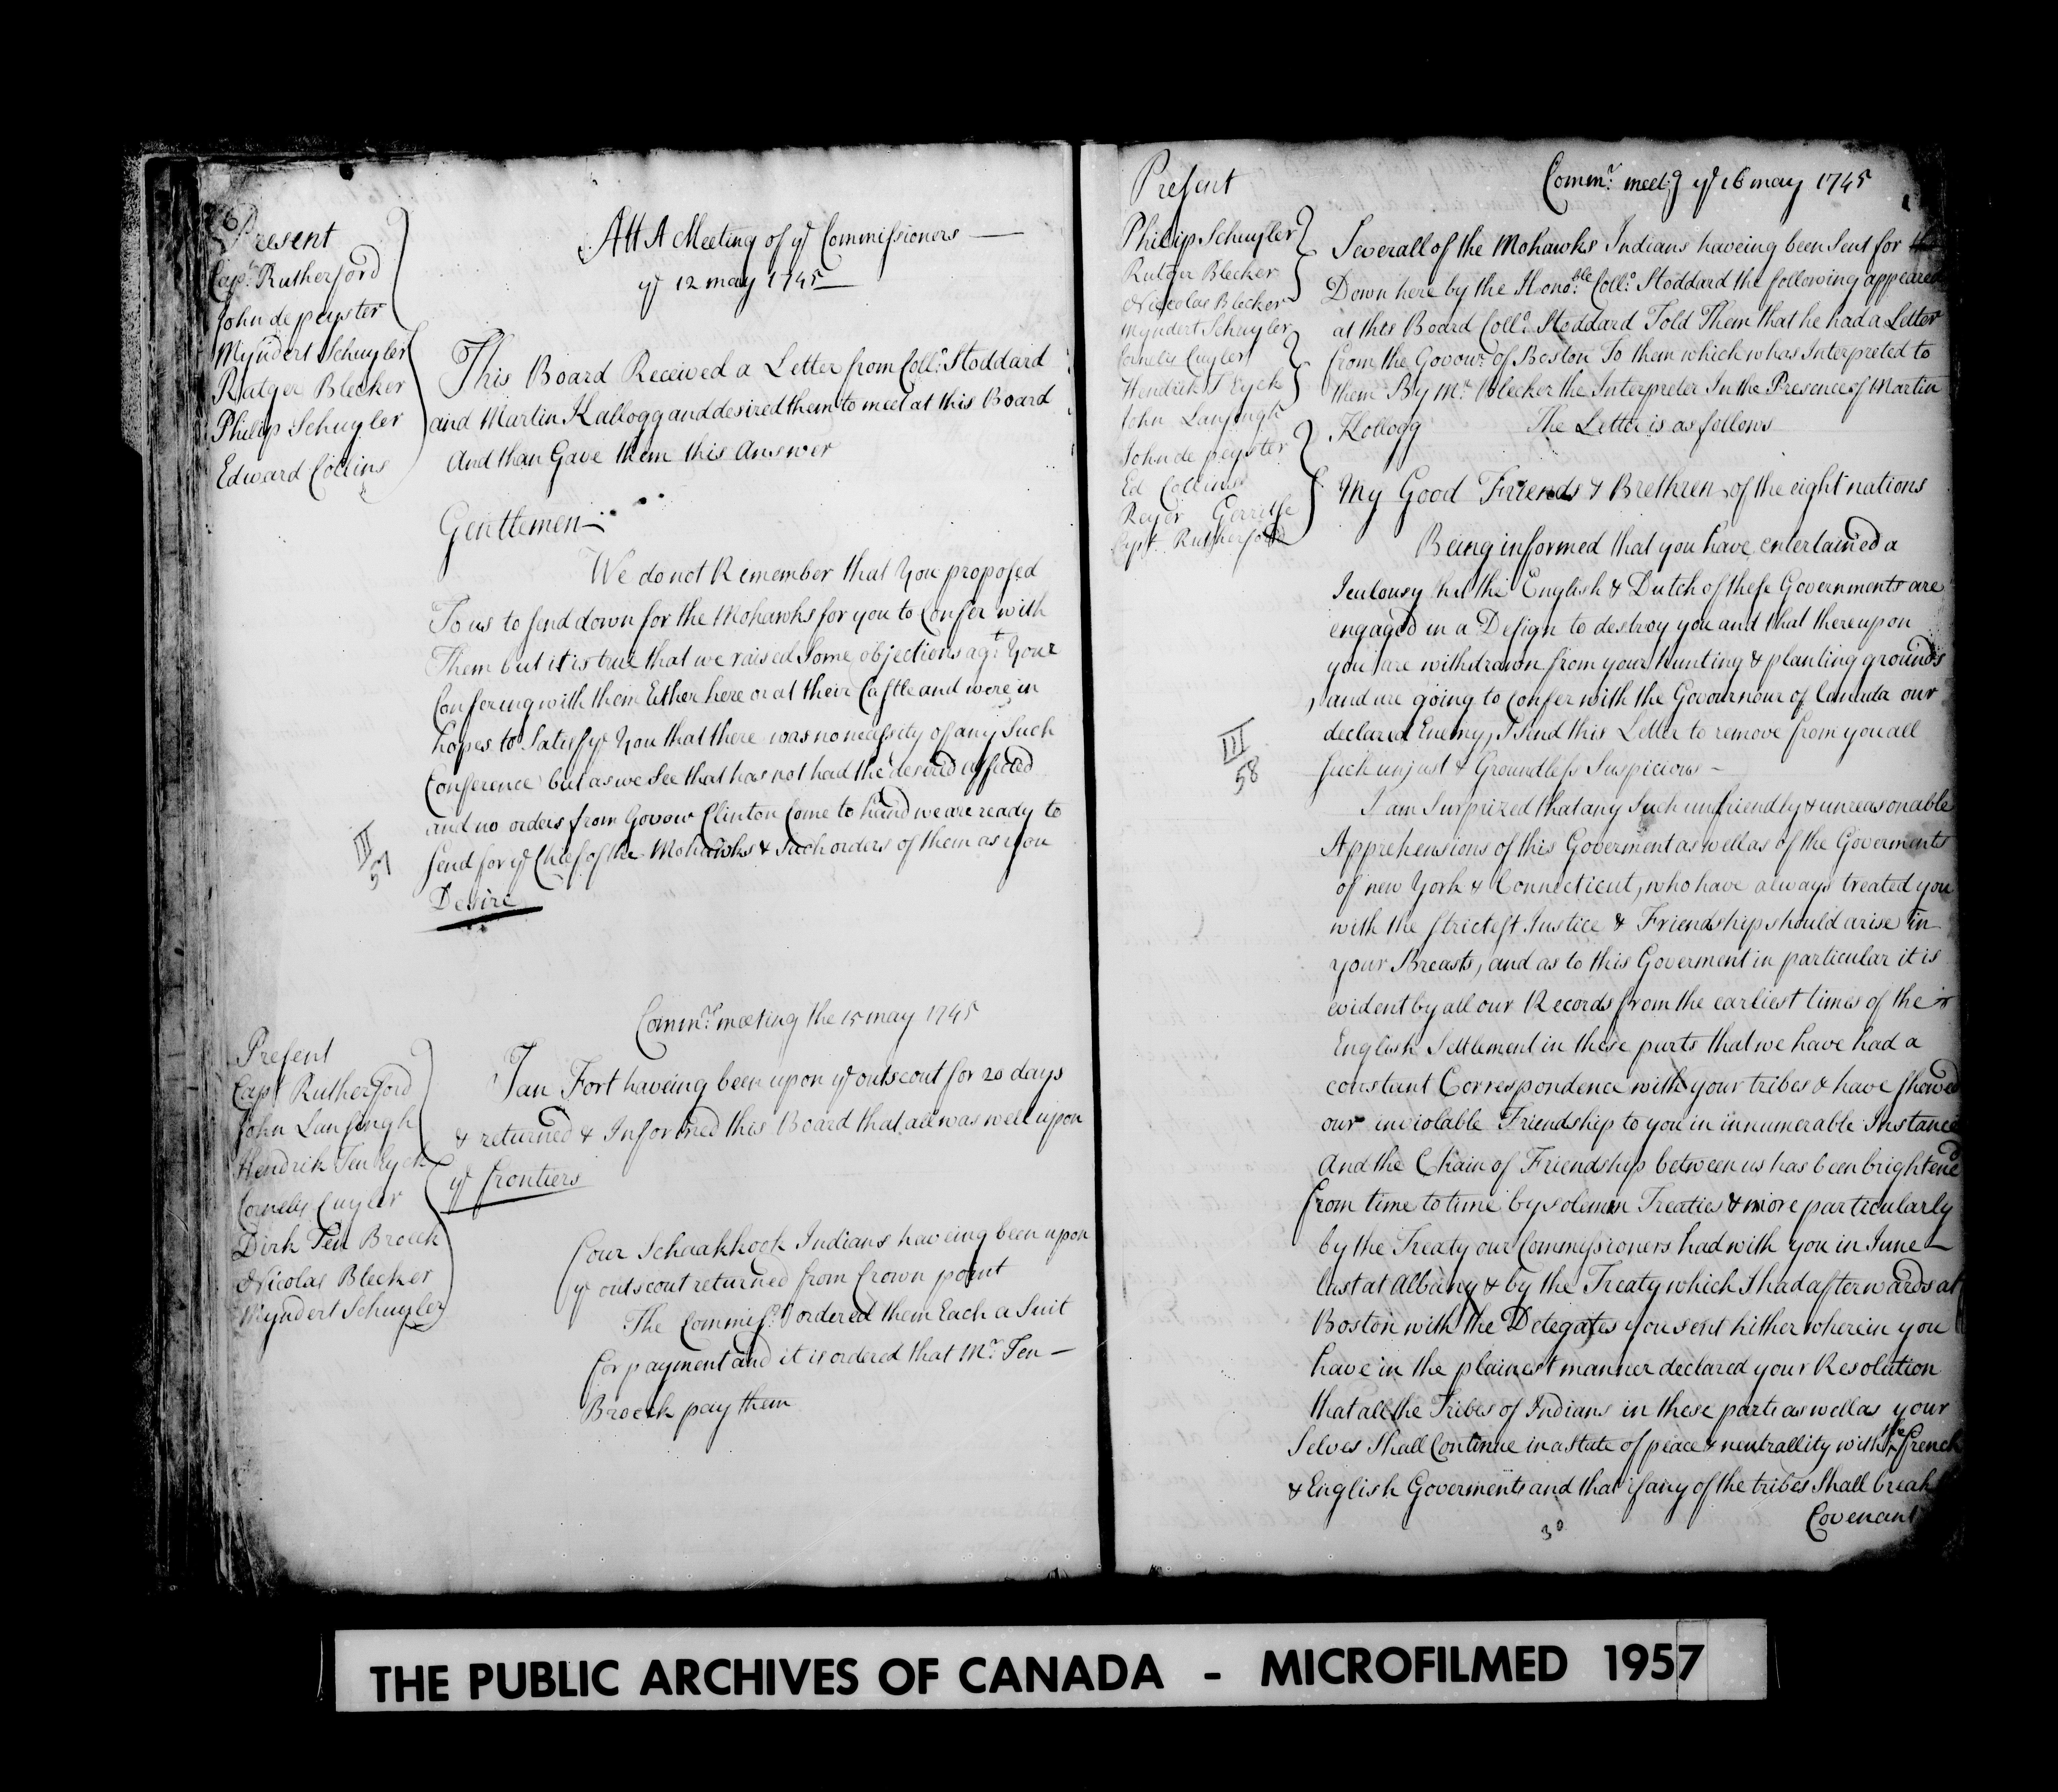 Present
Capt. Rutherford
John de peyster
Myndert Schuyler
Rutger Blecker
Philip Schuyler
Edward Collins
Att A Meeting of ye Commissioners —
ye 12 may 1745 —
This Board Received a Letter from Collo: Stoddard
and Martin Kallogg and desired them to meet at this Board
And than Gave them this Answer
Gentlemen —
We do not Remember that You proposed
To us to send down for the Mohawks for you to Confer with
Them but it is true that we raised Some objections agt. Your
Confering with them Either here or at their Castle and were in
hopes to Satisfye You that there was no necessity of any Such
Conference but as we See that has not had the desired effected
and no orders from Govour Clinton Come to hand we are ready to
send for ye Chief of the Mohawks & Such orders of them as you
Desire
III
57
Commrs: meeting the 15 may 1745
Present
Capt Rutherford
John Lansingh
Hendrik Ten Eyck
Cornelis Cuyler
Dirk Ten Broeck
Nicolas Blecker
Myndert Schuyler
Jan Fort haveing been upon ye outscout for 20 days
& returned & Informed this Board that all was well upon
ye frontiers
Four Schaahkook Indians haveing been upon
ye outscout returned from Crown point
The Commisrs ordered them Each a Suit
for payment and it is ordered that Mr. Ten —
Broeck pay them
Present
Commr. meetg ye 16 may 1745
Philip Schuyler
Rutger Blecker
Niecolas Blecker
Myndert Schuyler
Cornelis Cuyler
Hendrick T Eyck
John Lansingh
John de peyster
Ed Collins
Reyer Gerritse
Capt. Rutherford
Severall of the Mohawks Indians haveing been Sent for
Down here by the Honoble. Collo. Stoddard the following appeared
at this Board Collo. Stoddard Told Them that he had a Letter
from the Govour. of Boston To them which whas Interpreted to
them By Mr. Blecker the Interpreter In the Presence of Martin
Kollogg The Letter is as follows
My Good Friends & Brethren of the eight nations
Being informed that you have entertained a
Jealousy that the English & Dutch of these Governments are
engaged in a Design to destroy you and that thereupon
you are withdrawn from your hunting & planting grounds
and are going to confer with the Govournour of Canada our
declared Enemy, I Send this Letter to remove from you all
such unjust & Groundless Suspicious —
III
58
I am Surprized that any Such unfriendly & unreasonable
Apprehensions of this Goverment as well as of the Goverments
of new York & Connecticut, who have always treated you
with the strictest Justice & Friendship should arise in
your Breasts, and as to this Goverment in particular it is
evident by all our Records from the earliest times of the
English Settlement in these parts that we have had a
constant Correspondence with your tribes & have shewed
our inviolable Friendship to you in innumerable Instances
And the Chain of Friendship between us has been brightened
from time to time by solemn Treaties & more particularly
by the Treaty our Commissioners had with you in June —
last at Albany & by the Treaty which I had afterwards at
Boston with the Delegates you sent hither wherein you
have in the plainest manner declared your Resolution
that all the Tribes of Indians in these parts as well as your
Selves Shall Continue in a State of peace & neutrallity with the french
& English Goverments and that if any of the tribes Shall break
Covenant
30
THE PUBLIC ARCHIVES OF CANADA - MICROFILMED 1957